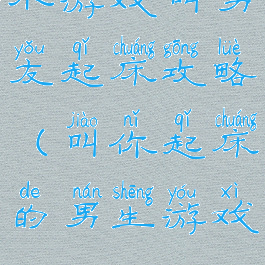 游戏叫男
yǒu qǐ chuáng gōng lüè
友起床攻略
jiào nǐ qǐ chuáng
(叫你起床
de nán shēng yóu xì
的男生游戏